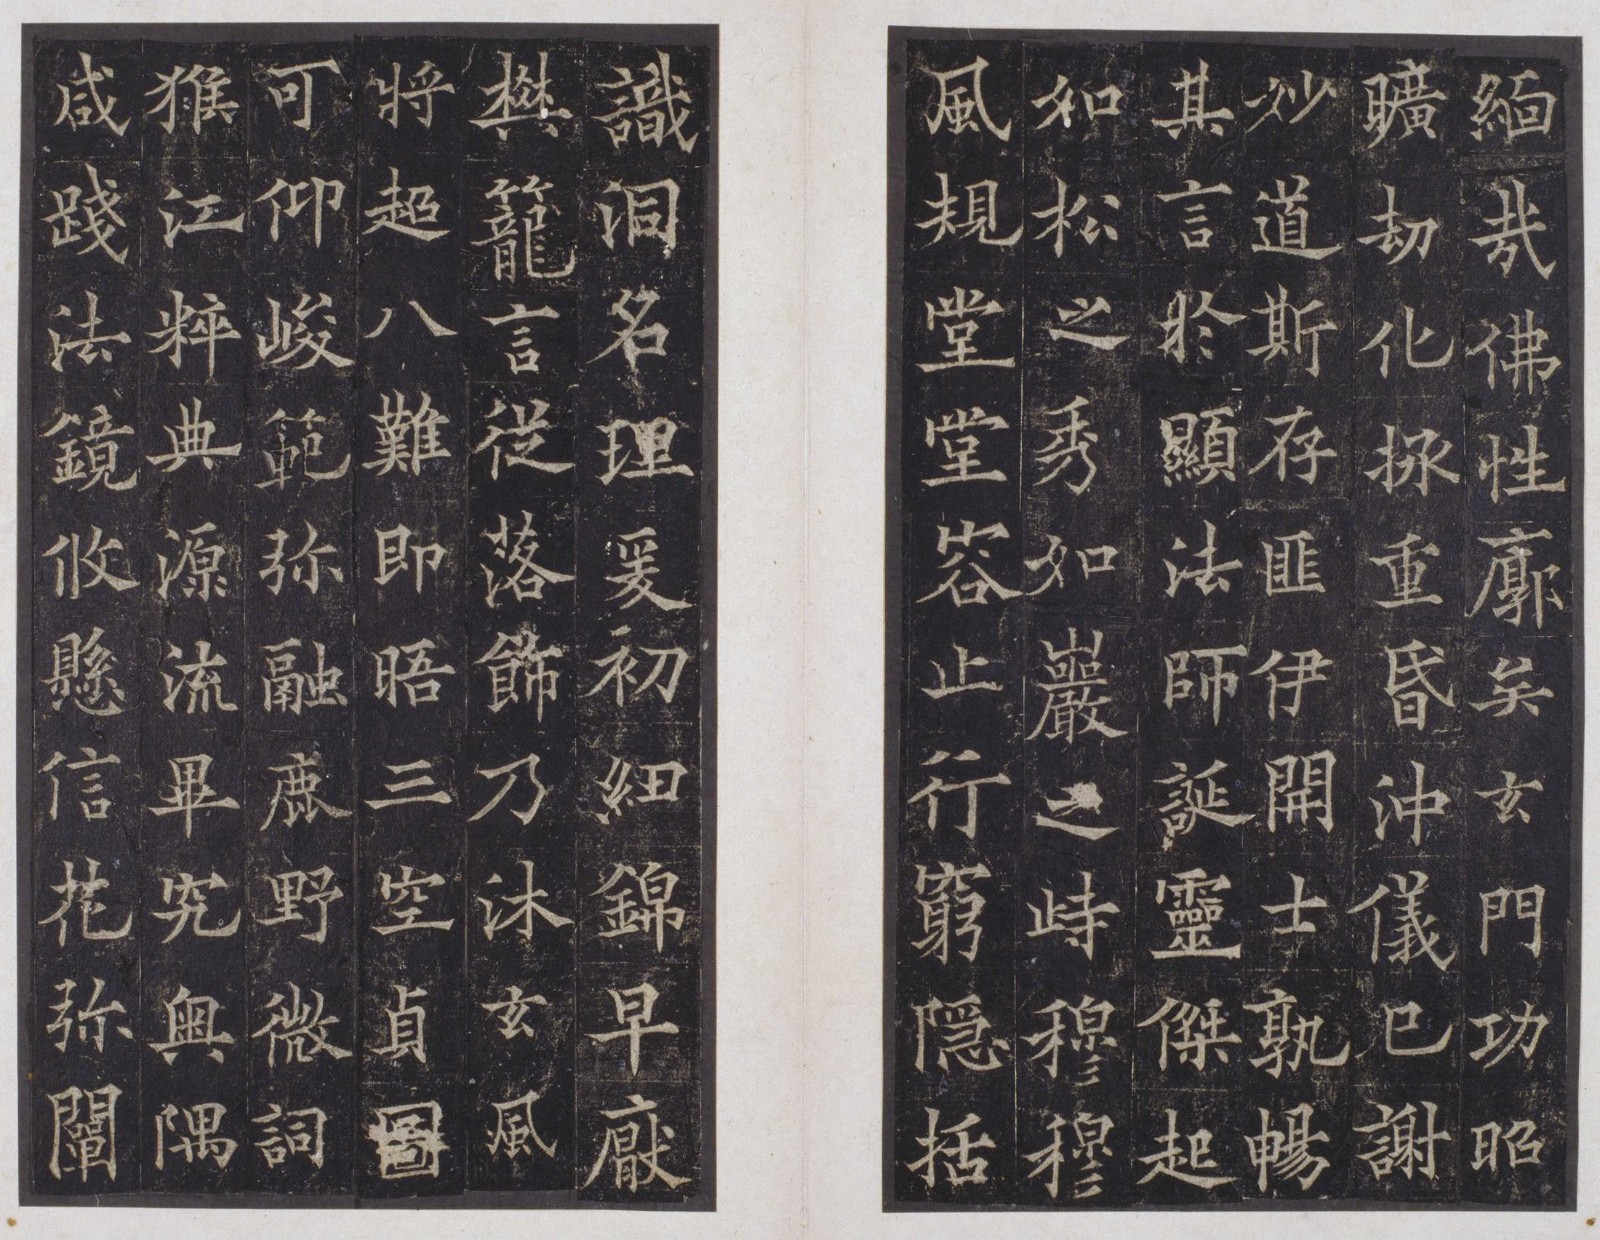 緬哉佛性廓矣玄門功昭
曠劫化拯重昏沖儀已謝
妙道斯存匪伊開士孰暢
其言於顯法師誕靈傑起
如松之秀如巖之峙穆穆
風規堂堂容止行窮隱括
識洞名理爰初紐錦早厭
樊籠言從落飾乃沐玄風
將超八難即晤三空貞圖
可仰峻範弥融鹿野微詞
猴江粹典源流畢究奧隅
咸踐法鏡攸懸信花弥闡